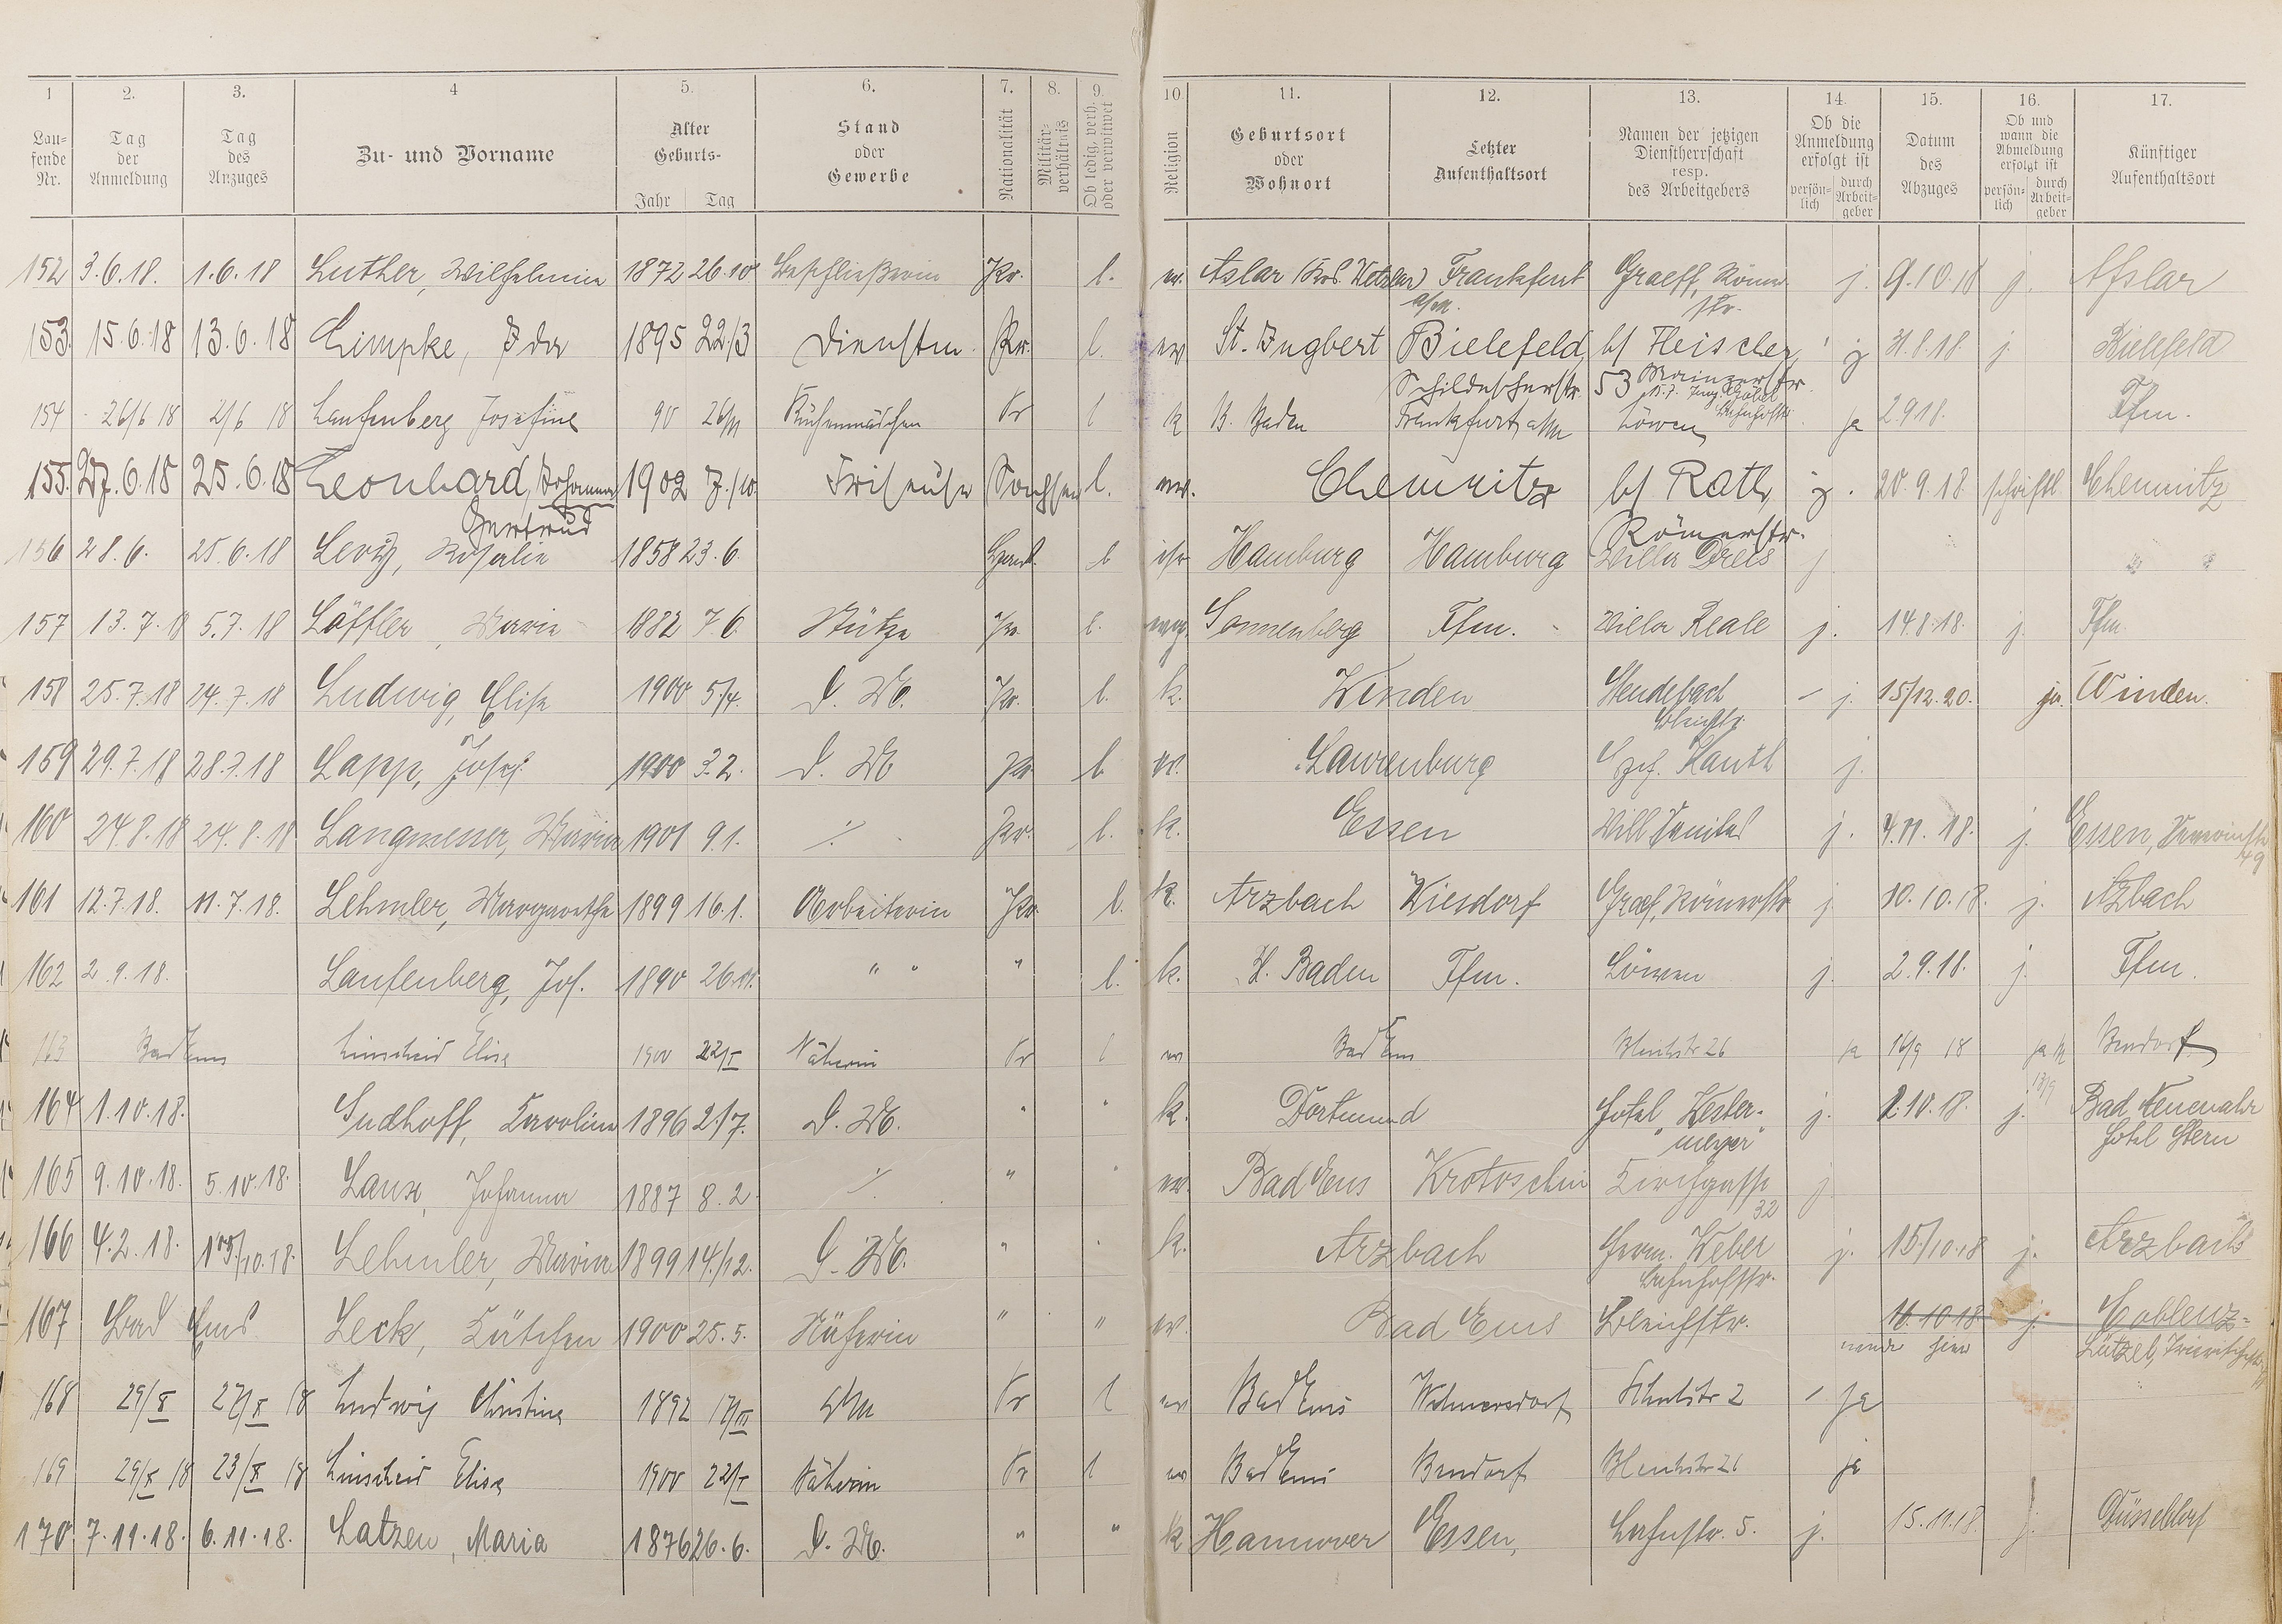 1 2. 3. 4 5. 6. 7. 8. 9. 10. 11. 12. 13. 14. 15. 16. 17.
Lau-
fende
Nr.
Tag
der
Anmeldung
Tag
des
Anzuges
Zu- und Vorname
Alter
Geburts-
Jahr Tag
Stand
oder
Gewerbe
Nationalität
Militär-
verhältnis
Ob ledig, verh.
oder verwitwet
Religion
Geburtsort
oder
Wohnort
Letzter
Aufenthaltsort
Namen der jetzigen
Dienstherrschaft
resp.
des Arbeitgebers
Ob die
Anmeldung
erfolgt ist
persön-
lich
durch
Arbeit-
geber
Datum
des
Abzuges
Ob und
wann die
Abmeldung
erfolgt ist
persön-
lich
durch
Arbeit-
geber
Künftiger
Aufenthaltsort
152 3.6.18. 1.6.18 Luther, Wilhelmine 1872 26.10. Beschließerin Pr. l. ev. Aslar (Krs. Wetzlar) Frankfurt Graeff, Römer j. 9.10.18 j. Asslar
a/M. str.
153. 15.6.18 13.6.18 Limpke, Ida 1895 22/3 Dienstm. Pr. l. ev St. Ingbert Bielefeld, b/ Fleischer, j 31.8.18. j. Bielefeld
Schildescherstr. 53 Mainzerstr.
154 26/6 18 2/6 18 Laufenberg Josefine 90 26/11 Küchenmädchen Pr l k B. Baden Frankfurt a/M Löwen Bahnhofstr. ja 2.9.18. Ffm.
155. 27.6.18 25.6.18 Leonhard, Johanna 1902 7./10. Friseuse Sachsen l. ev. Chemnitz b/ Rath, j. 20.9.18 schriftl Chemnitz
Gertrud Römerstr.
156 28.6. 25.6.18 Levy, Rosalie 1858 23.6. Hamb. l isr Hamburg Hamburg Villa Dreis j
157 13.7.18 5.7.18 Löffler, Maria 1882 7.6. Stütze Pr. l. evg. Sonnenberg Ffm. Villa Reale j. 14.8.18. j. Ffm.
158 25.7.18 24.7.18 Ludwig, Elise 1900 5/4. D. M. Pr. l. k. Winden Heudebach j. 15/12.20. ja. Winden.
Bleichstr.
159 29.7.18 28.7.18 Lapp, Josef 1900 3.2. D. M Pr l. ev. Laurenburg Hauth j.
160 24.8.18 24.8.18 Langmesser, Maria 1901 9.1. ./. Pr. l. k. Essen j. 4.11.18. j. Essen,
49
161 12.7.18. 11.7.18. Lehmler, Margarethe 1899 16.1. Arbeiterin Pr. l. k. Arzbach Wiesdorf Graef, Römerstr j. 10.10.18. j. Azbach
162 2.9.18. Laufenberg, Jos. 1890 26.11. " " " l. k. B. Baden Ffm. Löwen j. 2.9.18. j. Ffm.
163 Bad Ems Linscheid Elise 1900 22/I Näherin Pr l ev Bad Ems Bleichstr 26 ja 16/9 18 ja Bendorf
13/9
164 1.10.18. Sudhoff, Karoline 1896 2/7. D. M. " " k. Dortmund Hotel „Wester- j. 2.10.18. j. Bad Neuenahr
meyer" Hotel Stern
165 9.10.18. 5.10.18. Laux, Johanna 1887 8.2. ./. " " ev. Bad Ems Krotoschin Kirchgasse j
32
166 4.2.18. 15/10.18. Lehmler, Maria 1899 14./12. D. M. " " k. Arzbach Herm. Weber j. 15/10.18 j. Arzbach
Bahnhofstr.
167 Bad Ems Leck, Kätchen 1900 25.5. Näherin " " ev. Bad Ems Bleichstr. 11.10.18. j. Coblenz-
wieder hier Lützel,
168 29/X 27/X 18 Ludwig Christine 1892 17/III DM Pr l ev Bad Ems Wilmersdorf Schulstr 2 ja
169 29/X 18 23/X 18 Linscheid Elise 1900 22/I Näherin Pr l ev Bad Ems Bendorf Bleichstr 26 ja
170. 7.11.18. 6.11.18. Latzen, Maria 1876 26.6. D. M. " " k Hannover Essen, Lahnstr. 5. j. 15.11.18. j. Düsseldorf